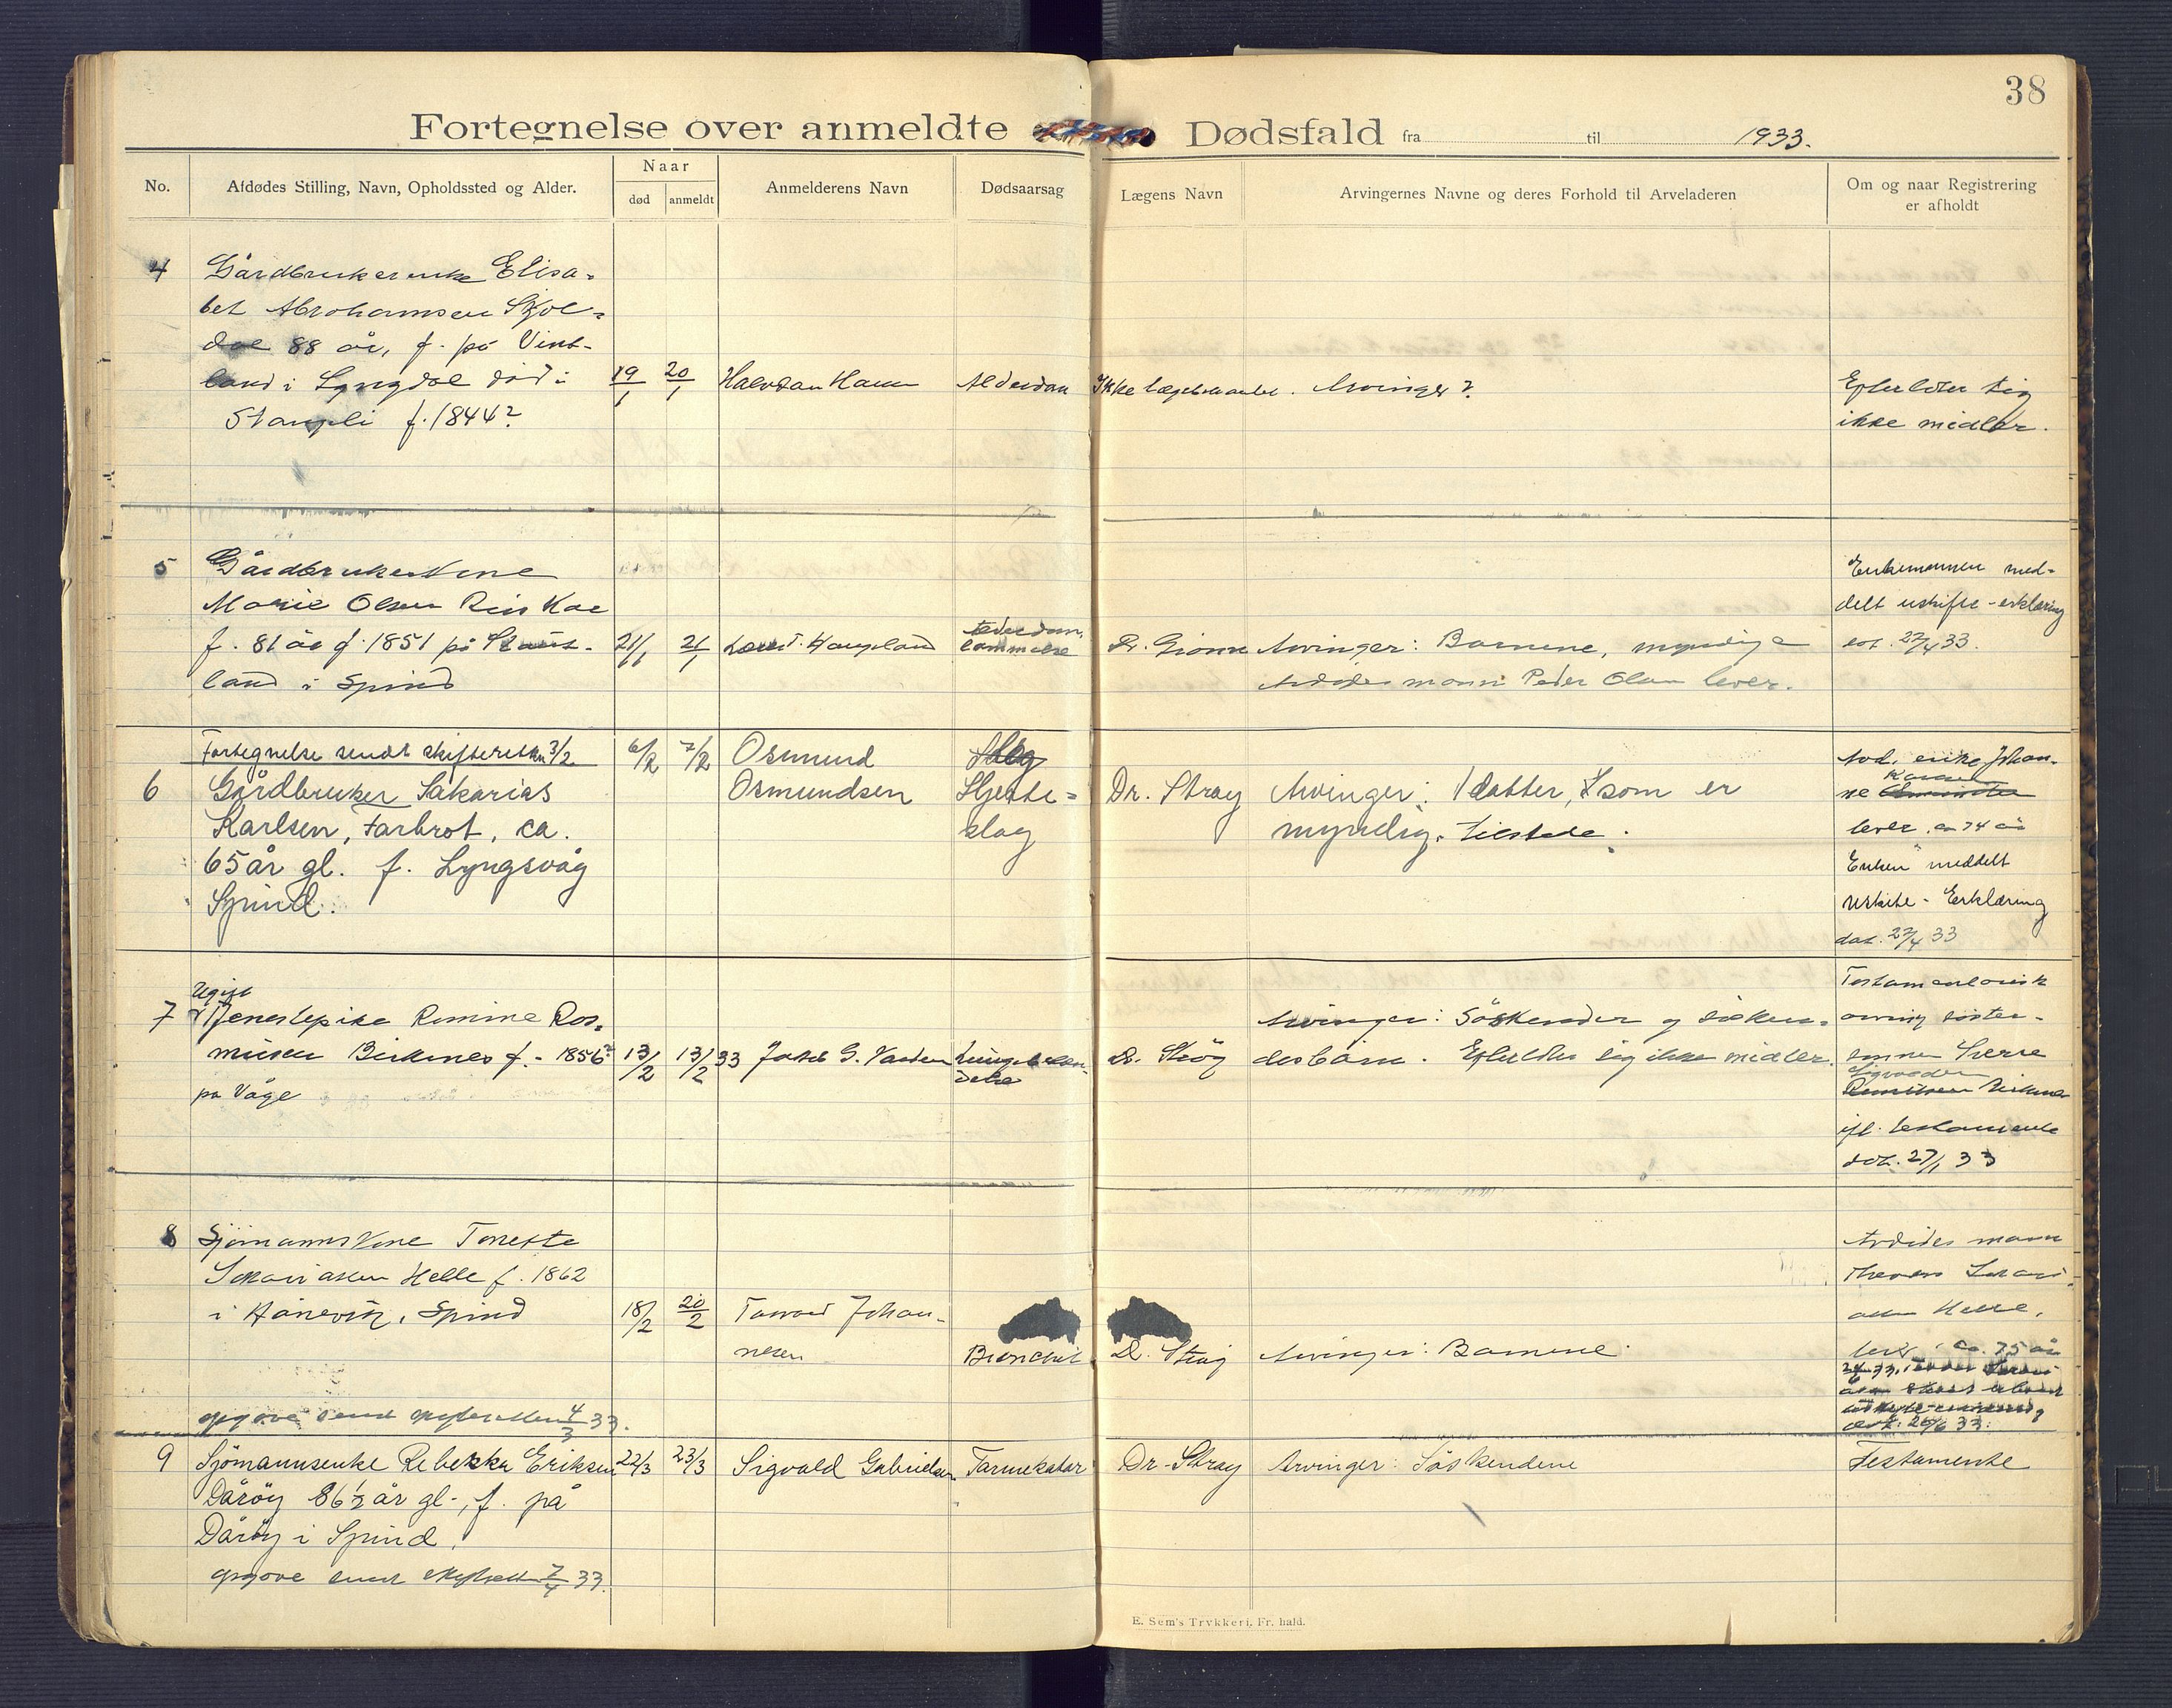 38
Fortegnelse over anmeldte Dødsfald fra til 1933.
No.
Afdødes Stilling, Navn, Opholdssted og Alder.
Naar
død
anmeldt
Anmelderens Navn
Dødsaarsag
Lægens Navn
Arvingernes Navne og deres Forhold til Arveladeren
Om og naar Registrering
er afholdt
4
Gårdbrukerenke Elisa-
bet Abrahamsen Skjol-
dal 88 år, f. på Vint-
land i Lyngdal død i
f. 1844?
19/1
20/1
Halvdan
Alderdom
Ikke lægebehandlet.
Arvinger?
Efterlater sig
ikke midler.
5
Gårdbrukerkone
Marie Olsen
f. 81 år f. 1851 på
land i Spind
21/1
21/1
Haugeland
Alderdom,
Arvinger: Barnene, myndige
Avdødes mann Peder Olsen lever.
Enkemannen med-
delt uskifte-erklæring
dat. 27/4 33.
Fortegnelse sendt skifteretten 3/2
6
Gårdbruker Sakarias
Karlsen, Farbrot, ca.
65 år gl. f. Lyngsvåg
Spind.
6/2
7/2
Osmund
Osmundsen
Hjerte=
slag
Dr. Stray
Arvinger: 1 datter, som er
myndig. tilstede.
Avd. enke Johan-
ne
lever, ca 74 år
Enken meddelt
uskifte-Erklæring
dat. 27/4 33
7
Ugift
Tjenestepike Romine Ras-
musen Birkenes f. 1856?
på Våge
13/2
13/2 33
Jakob G.
Dr. Stray
Arvinger: Søskender og søsken-
desbarn. Efterlater sig ikke midler.
Testamentarisk
arving søster-
sønnen Sverre
Sigvardsen
Birkenes
ifl. testamente
dat. 27/1 33
8
Sjømannskone Tonette
Sakariassen Helle f. 1862
i Hånevik, Spind
18/2
20/2
Johan-
nesen
Dr. Stray
Arvinger: Barnene.
Avdødes mann
Sakari-
assen Helle,
lever, ca. 75 år
dat. 26/6 33.
opgave sendt skifteretten 4/3 33.
9
Sjømannsenke Rebekka Eriksen
Dårøy 86½ år gl., f. på
Dårøy i Spind.
22/3
23/3
Sigvald Gabrielsen
Tarmekatar
Dr. Stray
Arvinger: Søskendene
Testamente
opgave sendt skifterett 7/4 33.
E. Sem's Trykkeri, Fr.hald.